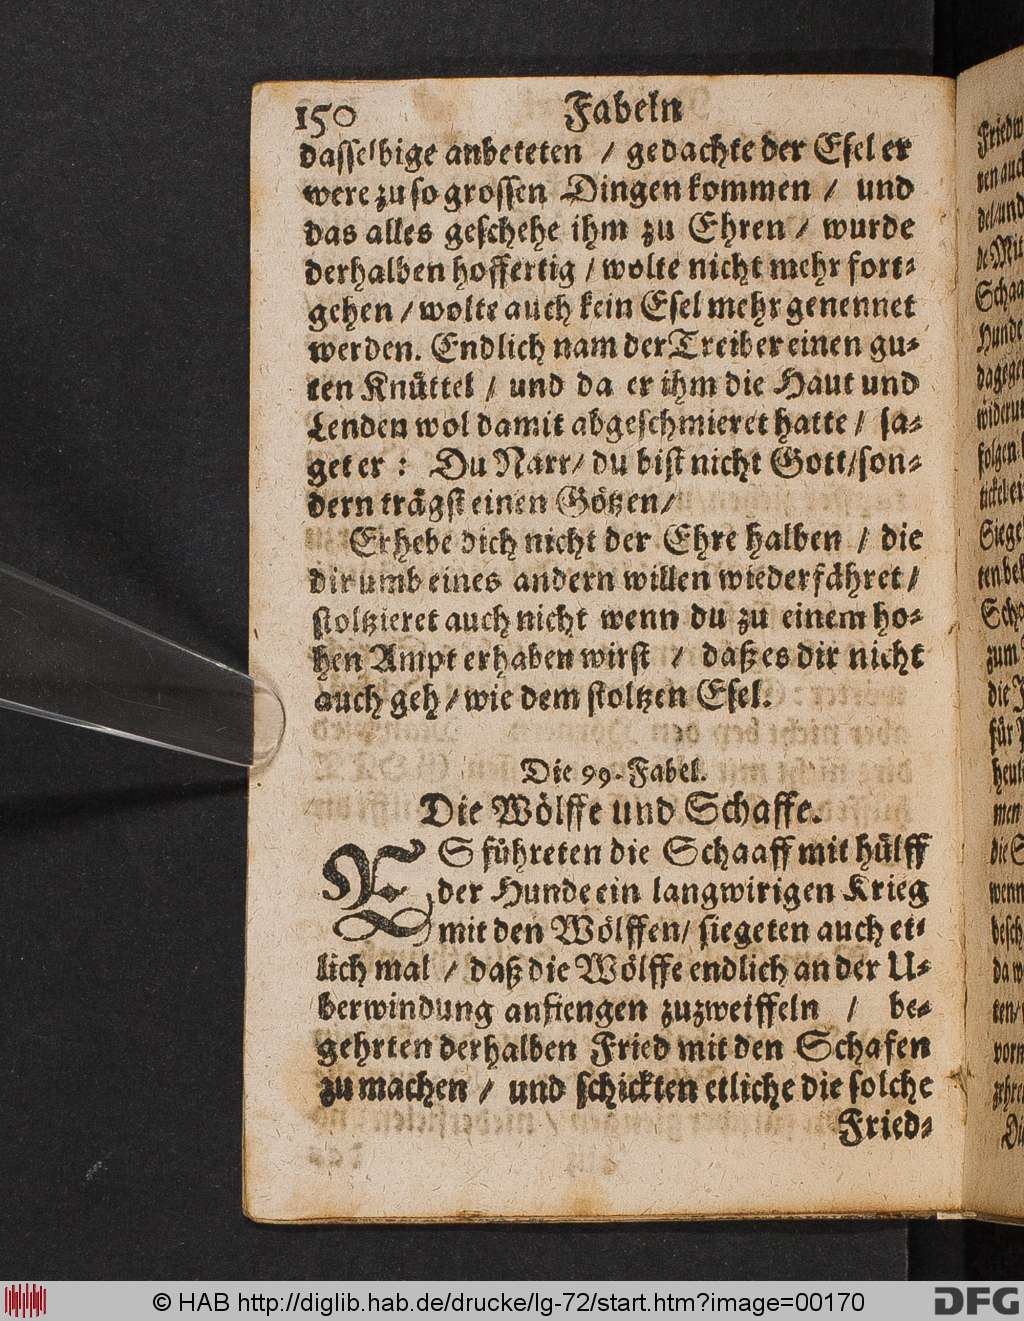 150 Fabeln
dasselbige anbeteten / gedachte der Esel er
were zu so grossen Dingen kommen / und
das alles geschehe ihm zu Ehren / wurde
derhalben hoffertig / wolte nicht mehr fort-
gehen / wolte auch kein Esel mehr genennet
werden. Endlich nam der Treiber einen gu-
ten Knüttel / und da er ihm die Haut und
Lenden wol damit abgeschmieret hatte / sa-
get er : Du Narr / du bist nicht Gott / son-
dern trägst einen Götzen /
Erhebe dich nicht der Ehre halben / die
dir umb eines andern willen wiederfähret /
stoltzieret auch nicht wenn du zu einem ho-
hen Ampt erhaben wirst / daß es dir nicht
auch geh / wie dem stoltzen Esel.
Die 99. Fabel.
Die Wölffe und Schaffe.
ES führeten die Schaaff mit hülff
der Hunde ein langwirigen Krieg
mit den Wölffen / siegeten auch et-
lich mal / daß die Wölffe endlich an der U-
berwindung anfiengen zuzweiffeln / be-
gehrten derhalben Fried mit den Schafen
zu machen / und schickten etliche die solche
Fried-
© HAB http://diglib.hab.de/drucke/lg-72/start.htm?image=00170
DFG